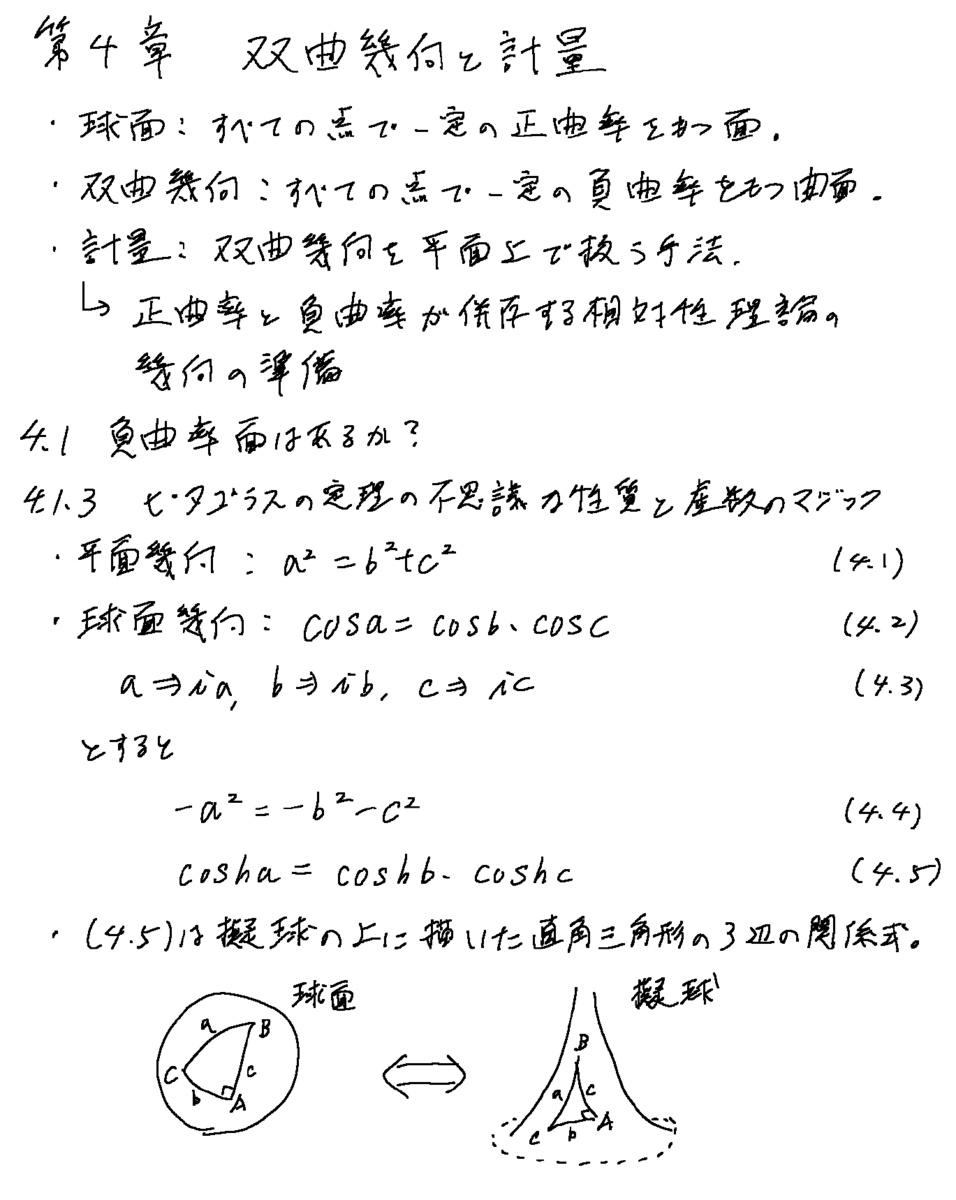 第4章 双曲幾何と計量
・球面：すべての点で一定の正曲率をもつ面.
・双曲幾何：すべての点で一定の負曲率をもつ曲面.
・計量：双曲幾何を平面上で扱う手法.
↳ 正曲率と負曲率が併存する相対性理論の
幾何の準備
4.1 負曲率面はあるか?
4.1.3 ピタゴラスの定理の不思議な性質と虚数のマジック
・平面幾何：a² = b²+c² (4.1)
・球面幾何：cosa = cosb・cosc (4.2)
a⇒ia, b⇒ib, c⇒ic (4.3)
とすると
-a² = -b²-c² (4.4)
cosha = coshb・coshc (4.5)
・(4.5)は擬球の上に描いた直角三角形の3辺の関係式。
球面
a B
C c
b A
⇔
擬球
B
a c
A
C b